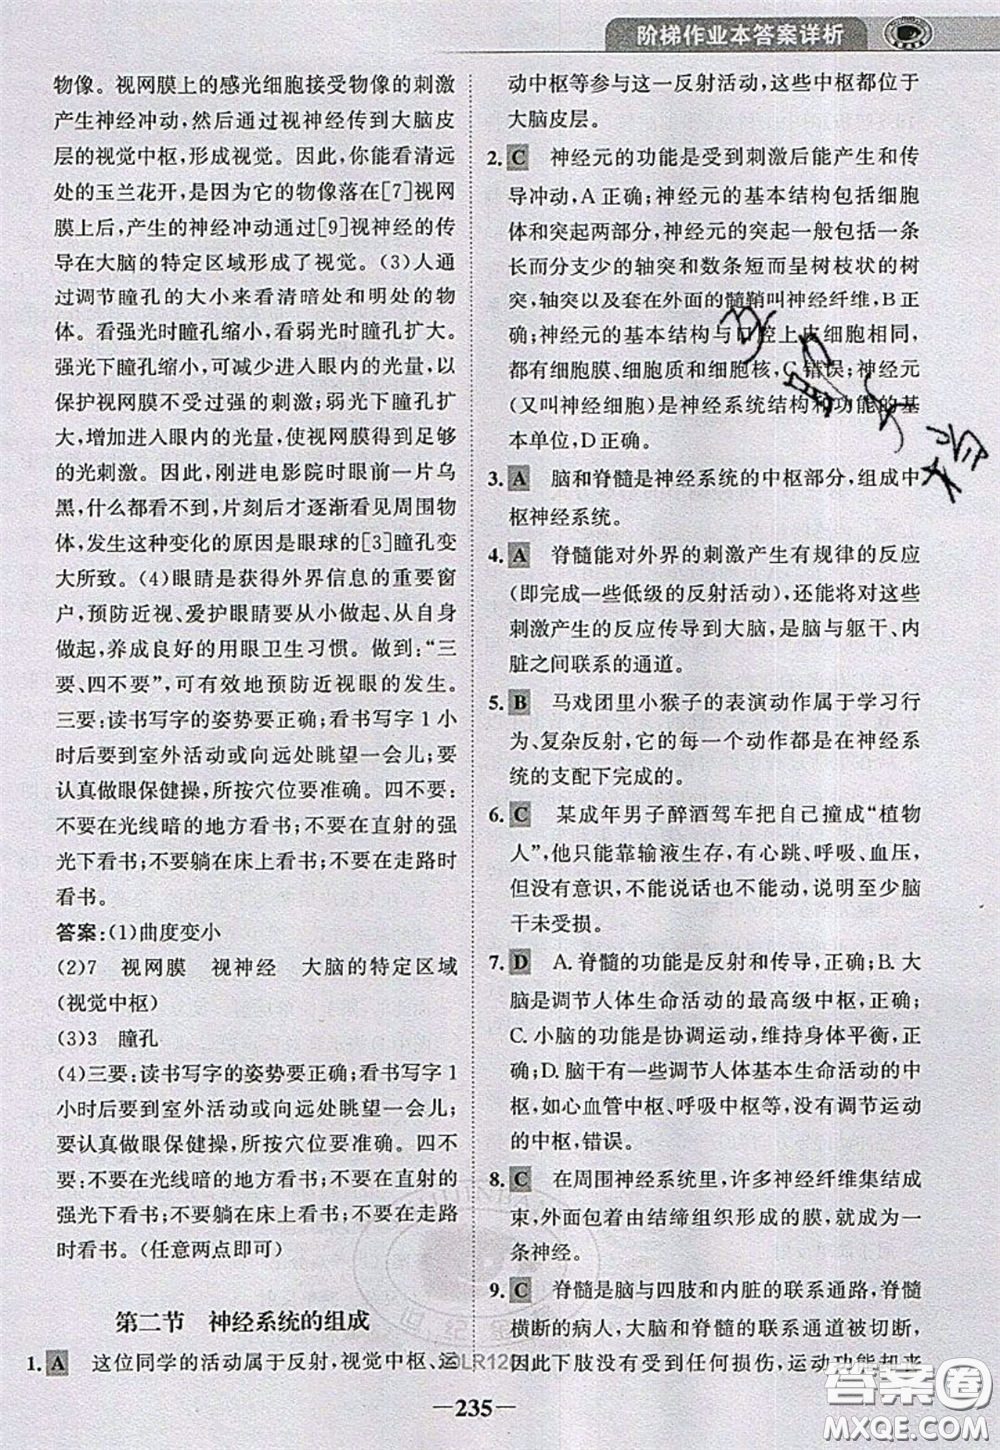 阶梯作业本答案详析
物像。视网膜上的感光细胞接受物像的刺激
产生神经冲动,然后通过视神经传到大脑皮
层的视觉中枢,形成视觉。因此,你能看清远
处的玉兰花开,是因为它的物像落在[7]视网
膜上,产生的神经冲动通过[9]视神经的传
导在大脑的特定区域形成了视觉。(3)人通
过调节瞳孔的大小来看清暗处和明处的物
体。看强光时瞳孔缩小,看弱光时瞳孔扩大。
强光下瞳孔缩小,减少进入眼内的光量,以
保护视网膜不受过强的刺激;弱光下瞳孔扩
大,增加进入眼内的光量,使视网膜得到足够
的光刺激。因此,刚进电影院时眼前一片乌
黑,什么都看不到,片刻后才能看见周围的物
体,发生这种变化的原因是眼球的[3]瞳孔变
大所致。(4)眼睛是获得外界信息的重要窗
户,预防近视、爱护眼睛要从小做起、从自身
做起,养成良好的用眼卫生习惯。做到:“三
要、四不要”,可有效地预防近视眼的发生。
三要:读书写字的姿势要正确;看书写字 1 小
时后要到室外活动或向远处眺望一会儿;要
认真做眼保健操,所按穴位要准确。四不要:
不要在光线暗的地方看书;不要在直射的强
光下看书;不要躺在床上看书;不要在走路时
看书。
答案:(1)曲度变小
(2)7 视网膜 视神经 大脑的特定区域
(视觉中枢)
(3)3 瞳孔
(4)三要:读书写字的姿势要正确;看书写字 1
小时后要到室外活动或向远处眺望一会儿;
要认真做眼保健操,所按穴位要准确。四不要:
不要在光线暗的地方看书;不要在直射的
强光下看书;不要躺在床上看书;不要在走路
时看书。(任意两点即可)
第二节 神经系统的组成
1. A 这位同学的活动属于反射,视觉中枢、运
动中枢等参与了这一反射活动,这些中枢都位于
大脑皮层。
2. C 神经元的功能是受到刺激后能产生和传
导冲动,A 正确;神经元的基本结构包括细胞
体和突起两部分,神经元的突起一般包括一条
长而分支少的轴突和数条短而呈树枝状的树
突,轴突以及套在外面的髓鞘叫神经纤维,B 正
确;神经元的基本结构与口腔上皮细胞相同,
都有细胞膜、细胞质和细胞核,C 错误;神经元
(又叫神经细胞)是神经系统结构和功能的基
本单位,D 正确。
3. A 脑和脊髓是神经系统的中枢部分,组成中
枢神经系统。
4. A 脊髓能对外界的刺激产生有规律的反应
(即完成一些低级的反射活动),还能将对这些
刺激产生的反应传导到大脑,是脑与躯干、内
脏之间联系的通道。
5. B 马戏团里小猴子的表演动作属于学习行
为、复杂反射,它的每一个动作都是在神经系
统的支配下完成的。
6. C 某成年男子醉酒驾车把自己撞成“植物
人”,他只能靠输液生存,有心跳、呼吸、血压,
但没有意识,不能说话也不能动,说明至少脑
干未受损。
7. D A.脊髓的功能是反射和传导,正确;B.大
脑是调节人体生命活动的最高级中枢,正确;
C.小脑的功能是协调运动,维持身体平衡,正
确;D.脑干有一些调节人体基本生命活动的中
枢,如心血管中枢、呼吸中枢等,没有调节运动
的中枢,错误。
8. C 在周围神经系统里,许多神经纤维集结成
束,外面包着由结缔组织形成的膜,就成为一
条神经。
9. C 脊髓是脑与四肢和内脏的联系通路,脊髓
横断的病人,大脑与下肢的神经联系被切断,
因此下肢没有受到任何损伤,运动功能却来
235
答案圈
MXQE.COM